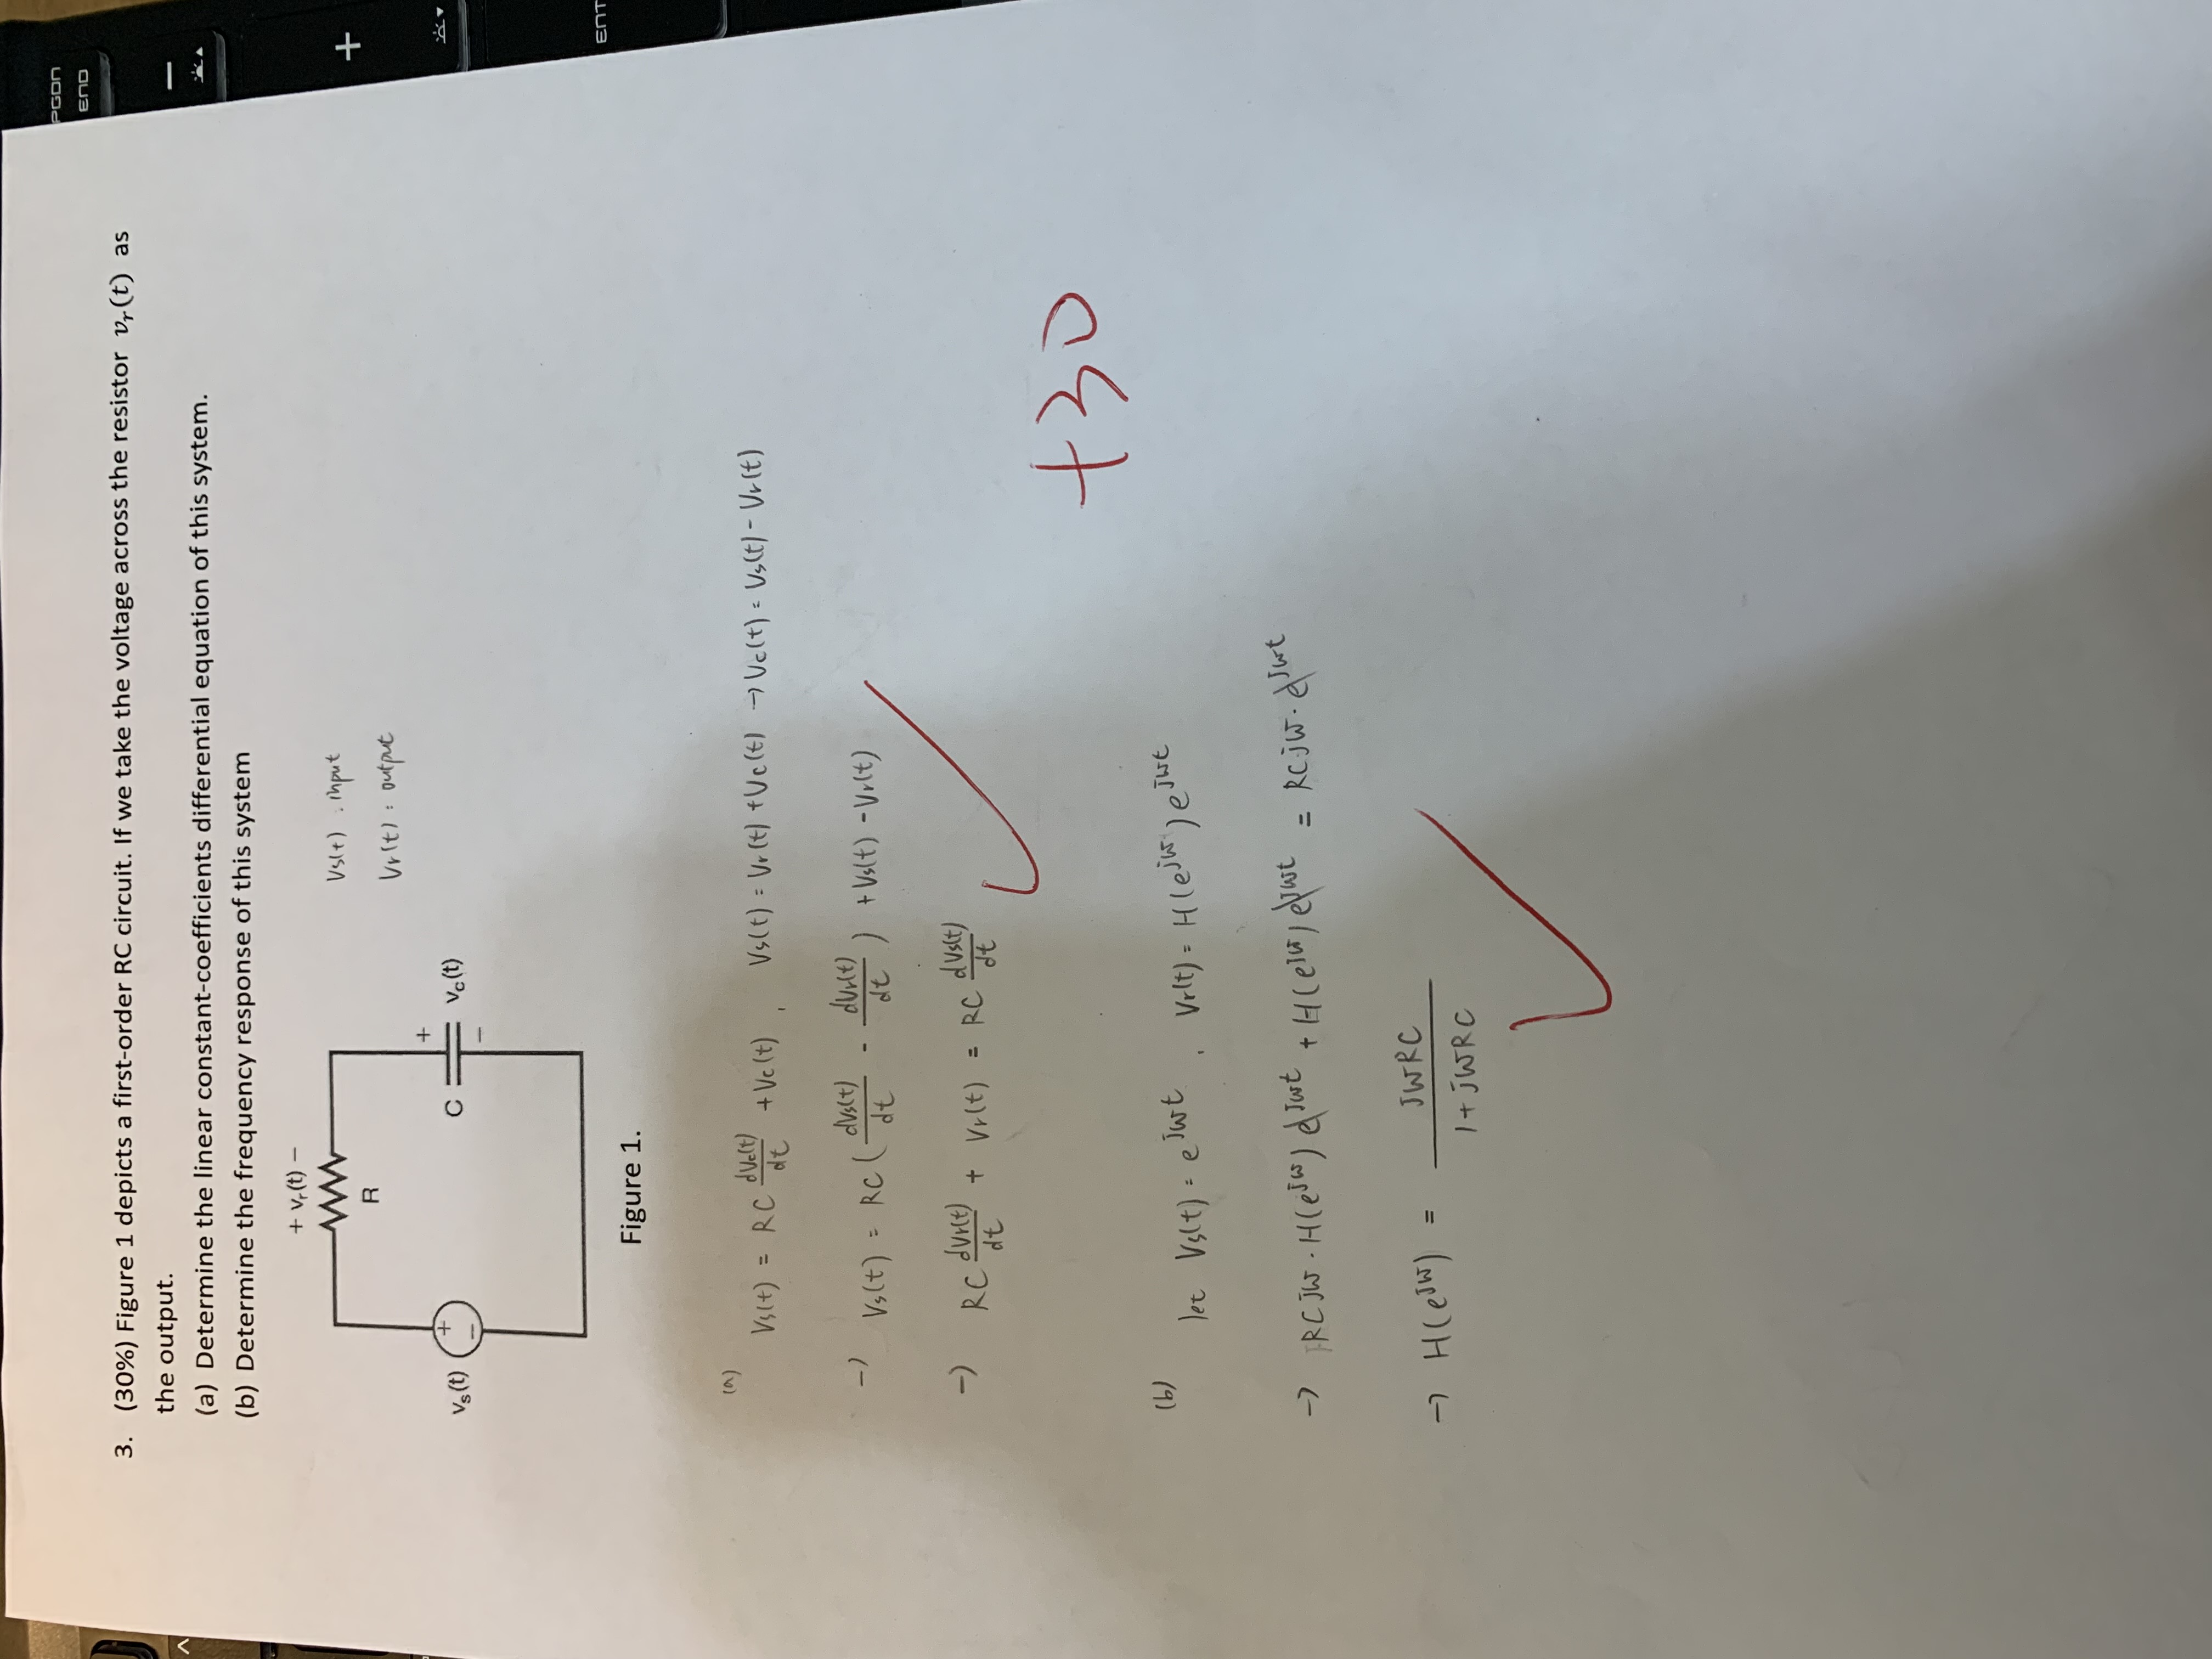 3. (30%) Figure 1 depicts a first-order RC circuit. If we take the voltage across the resistor v_r(t) as
the output.
(a) Determine the linear constant-coefficients differential equation of this system.
(b) Determine the frequency response of this system
+ v_r(t) −
R
+
−
v_s(t)
C
+
−
v_c(t)
Figure 1.
Vs(t) : input
Vr(t) : output
(a)
Vs(t) = RC dVc(t)/dt + Vc(t) , Vs(t) = Vr(t) + Vc(t) → Vc(t) = Vs(t) - Vr(t)
→ Vs(t) = RC ( dVs(t)/dt - dVr(t)/dt ) + Vs(t) - Vr(t)
→ RC dVr(t)/dt + Vr(t) = RC dVs(t)/dt
+30
(b)
let Vs(t) = e^jwt , Vr(t) = H(e^jw) e^jwt
→ RC jw · H(e^jw) e^jwt + H(e^jw) e^jwt = RC jw · e^jwt
→ H(e^jw) = jwRC / 1 + jwRC
PGDN
END
−
+
ENT